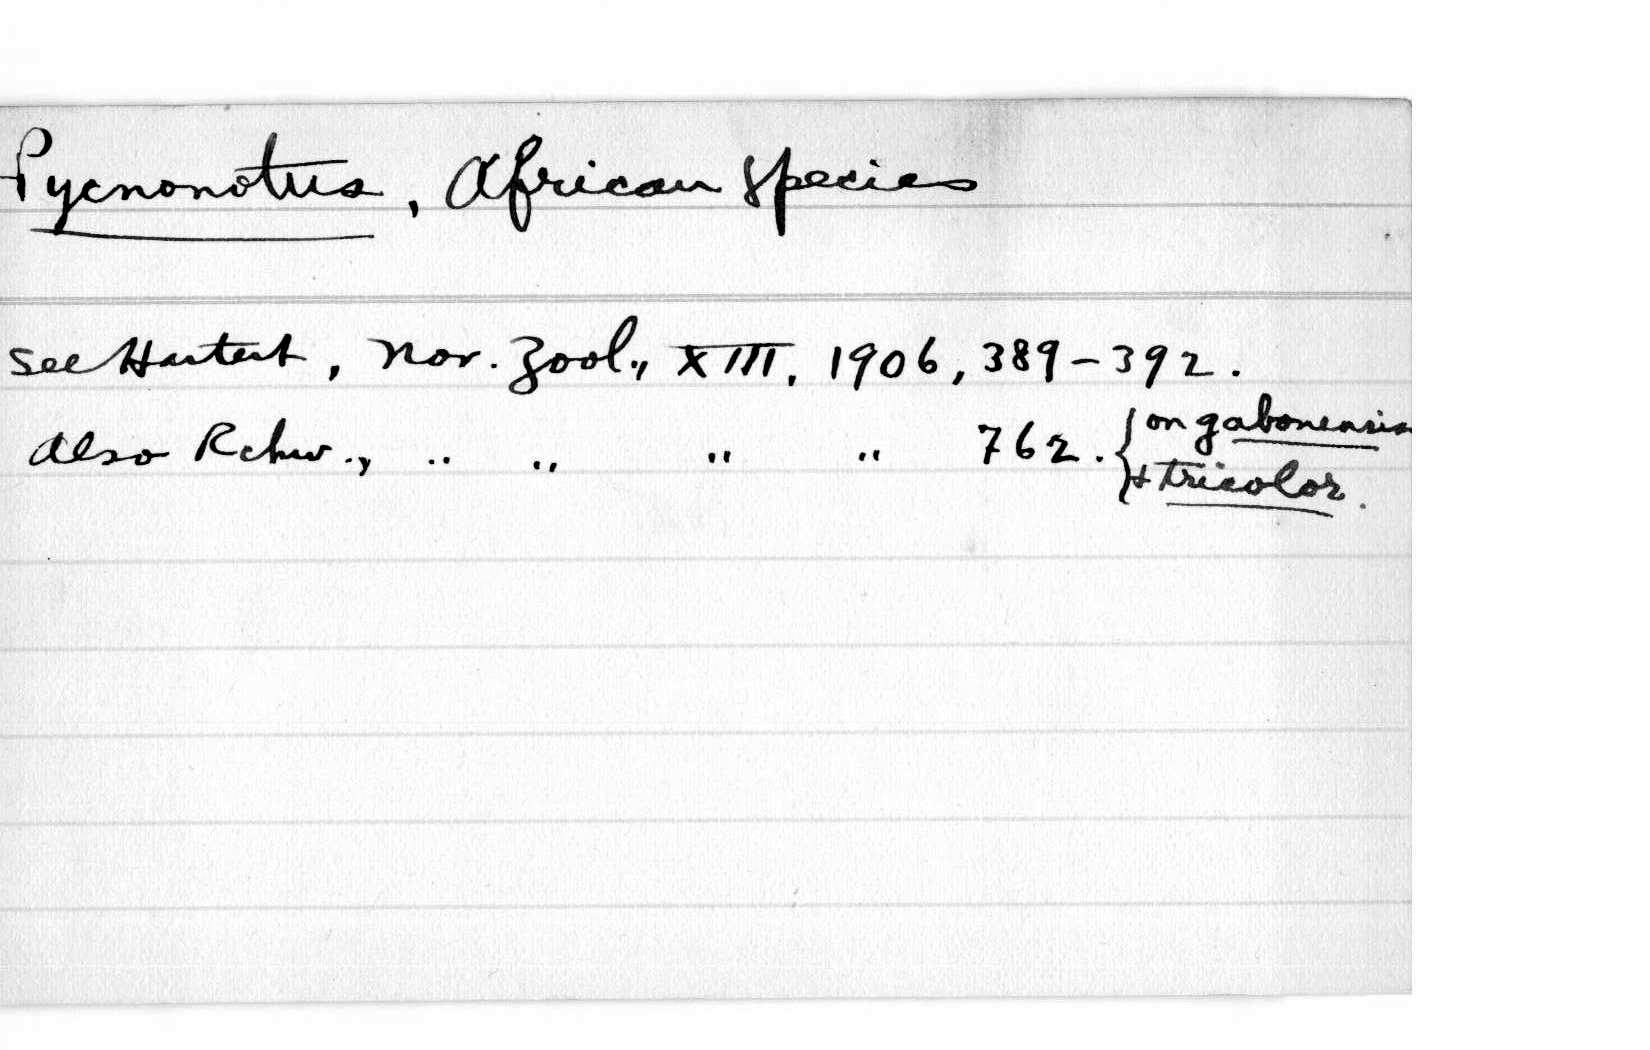 Pycnonotus, African species
see Hartert, Nov. Zool., XIII, 1906, 389-392.
Also Rchw., " " " " 762. { on gabonensis
+ tricolor.